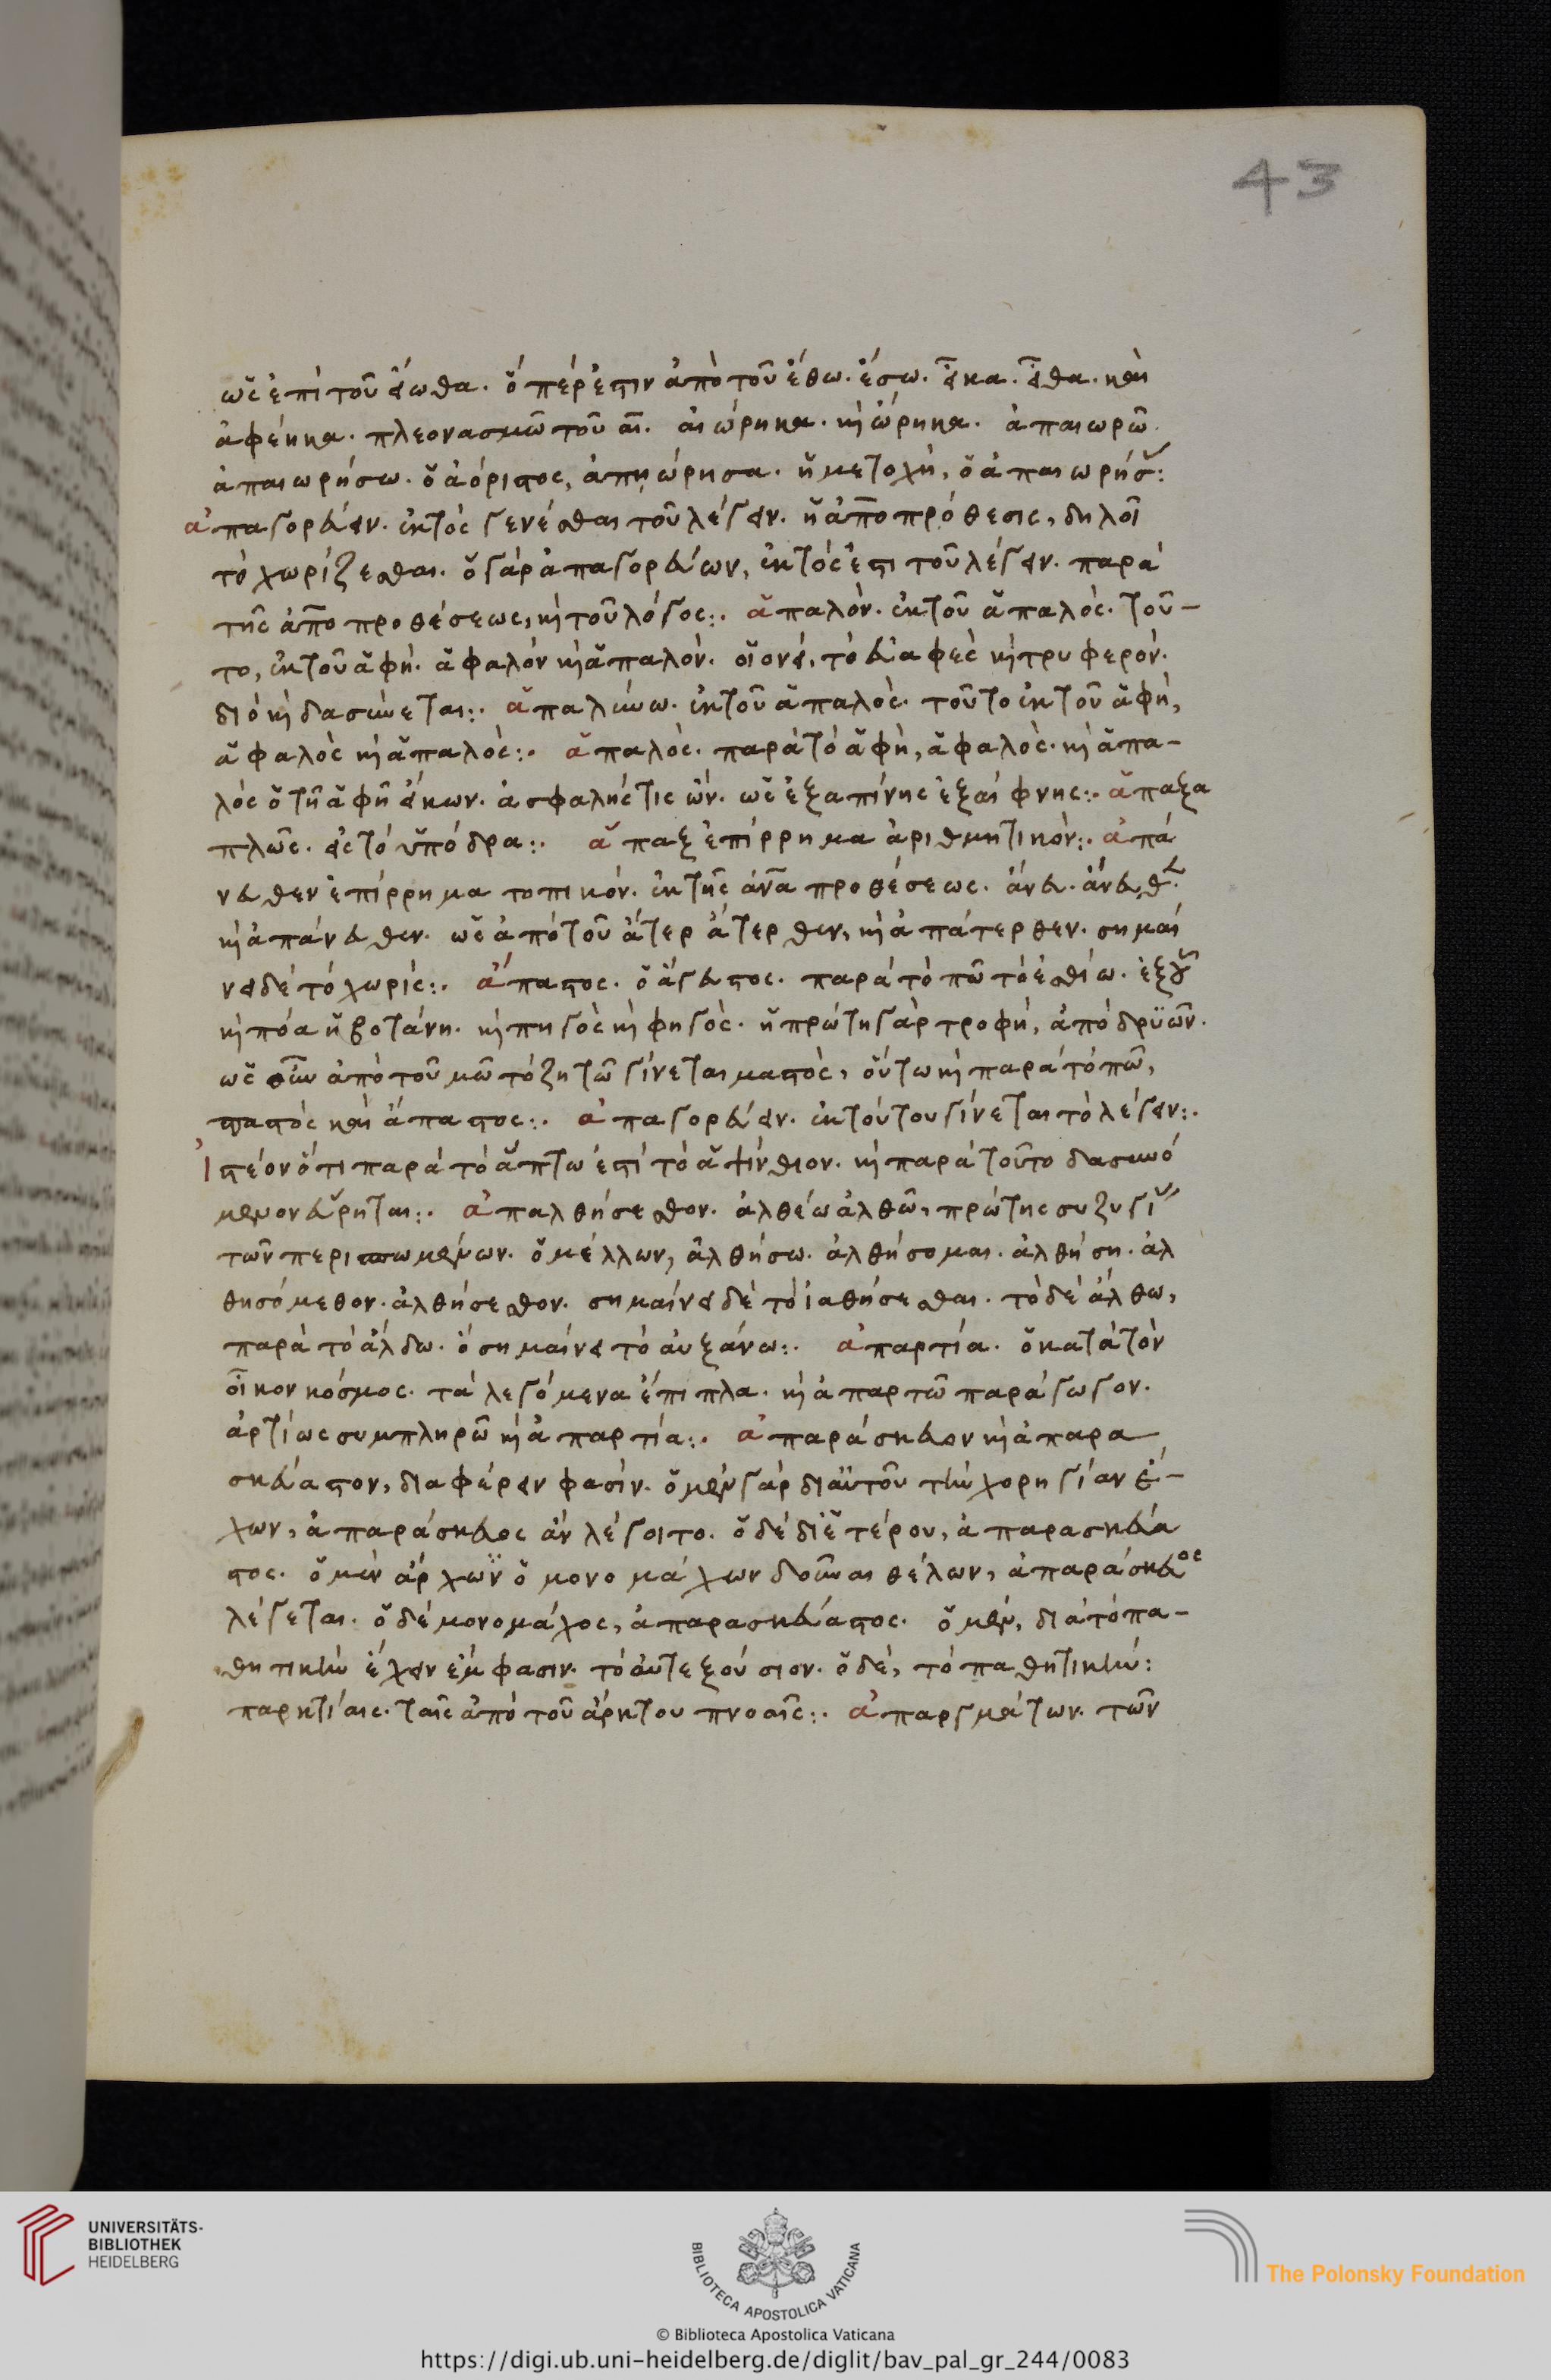 43
ὡς ἐπὶ τοῦ εἴωθα. ὅπέρ ἐστιν ἀπὸ τοῦ ἔθω. ἔσω. εἶκα. εἶθα. καὶ
ἀφέηκα. πλεονασμῶ τοῦ αι. αἰώρηκα. κὶ ὠρηκα. ἀπαιωρῶ.
ἀπαιωρήσω. ὁ ἀόριστος, ἀπηώρησα. ἡ μετοχὴ, ὁ ἀπαιωρήσ:
ἀπαγορεύειν. ἐκτὸς γενέσθαι τοῦ λέγειν. ἡ ἀπο πρόθεσις, δηλοῖ
τὸ χωρίζεσθαι. ὁ γὰρ ἀπαγορεύων, ἐκτός ἐστι τοῦ λέγειν. παρὰ
τῆς ἀπο προθέσεως, κὶ τοῦ λόγος:. ἁπαλὸν. ἐκ τοῦ ἁπαλὸς. τοῦ-
το, ἐκ τοῦ ἁφὴ. ἁφαλὸν κὶ ἁπαλὸν. οἱονεὶ, τὸ εὐαφὲς κὶ τρυφερόν.
διὸ κὶ δασύνεται:. ἁπαλύνω. ἐκ τοῦ ἁπαλὸς. τοῦτο ἐκ τοῦ ἁφὴ,
ἁφαλὸς κὶ ἁπαλὸς:. ἁπαλὸς. παρὰ τὸ ἁφὴ, ἁφαλὸς. κὶ ἁπα-
λὸς ὁ τῆ ἁφῆ εἴκων. ἀσφαλής τις ὢν. ὡς ἐξαπίνης ἐξαίφνης:. ἅπαξα
πλῶς. εἰς τὸ ὑπόδρα:. ἅπαξ ἐπίρρημα ἀριθμητικὸν:. ἀπά
νευθεν ἐπίρρημα τοπικὸν. ἐκ τῆς ἀνα προθέσεως. ἄνευ. ἄνευθ.
κὶ ἀπάνευθεν. ὡς ἀπὸ τοῦ ἄτερ ἄτερθεν, κὶ ἀπάτερθεν. σημαί
νει δὲ τὸ χωρίς:. ἄπαστος. ὁ ἄγευστος. παρὰ τὸ πῶ τὸ ἐσθίω. ἐξ οὗ
κὶ πόα ἡ βοτάνη. κὶ πηγὸς κὶ φηγὸς. ἡ πρώτη γὰρ τροφὴ, ἀπὸ δρυῶν.
ὡς οὖν ἀπὸ τοῦ μῶ τὸ ζητῶ γίνεται μαστὸς, οὕτω κὶ παρὰ τὸ πῶ,
παστὸς καὶ ἄπαστος:. ἀπαγορεύειν. ἐκ τούτου γίνεται τὸ λέγειν:.
Ἰστέον ὅτι παρὰ τὸ ἅπτω ἐστὶ τὸ ἁψίνθιον. κὶ παρὰ τοῦτο δασυνό
μενον εὕρηται:. ἀπαλθήσεσθον. ἀλθέω ἀλθῶ, πρώτης συζυγί
τῶν περισπωμένων. ὁ μέλλων, ἀλθήσω. ἀλθήσομαι. ἀλθήση. ἀλ
θησόμεθον. ἀλθήσεσθον. σημαίνει δὲ τὸ ἰαθήσεσθαι. τὸ δὲ ἄλθω,
παρὰ τὸ ἄλδω. ὃ σημαίνει τὸ αὐξάνω:. ἀπαρτία. ὁ κατὰ τὸν
οἶκον κόσμος. τὰ λεγόμενα ἔπιπλα. κὶ ἀπαρτῶ παράγωγον.
ἀρτίως συμπληρῶ κὶ ἀπαρτία:. ἀπαράσκευον κὶ ἀπαρα
σκεύαστον, διαφέρειν φασὶν. ὁ μὲν γὰρ δι αὑτοῦ τὴν χορηγίαν ἔ-
χων, ἀπαράσκευος ἂν λέγοιτο. ὁ δὲ δι ἑτέρου, ἀπαρασκεύα
στος. ὁ μὲν ἀρχων ὁ μονομάχων δοῦναι θέλων, ἀπαράσκευος
λέγεται. ὁ δὲ μονομάχος, ἀπαρασκεύαστος. ὁ μὲν, διὰ τὸ πα-
θητικὴν ἔχειν ἔμφασιν. τὸ αὐτεξούσιον. ὁ δὲ, τὸ παθητικήν:
παρκτίαις. ταῖς ἀπὸ τοῦ ἄρκτου πνοαῖς:. ἀπαργμάτων. τῶν
UNIVERSITÄTS-
BIBLIOTHEK
HEIDELBERG
BIBLIOTECA APOSTOLICA VATICANA
The Polonsky Foundation
© Biblioteca Apostolica Vaticana
https://digi.ub.uni-heidelberg.de/diglit/bav_pal_gr_244/0083